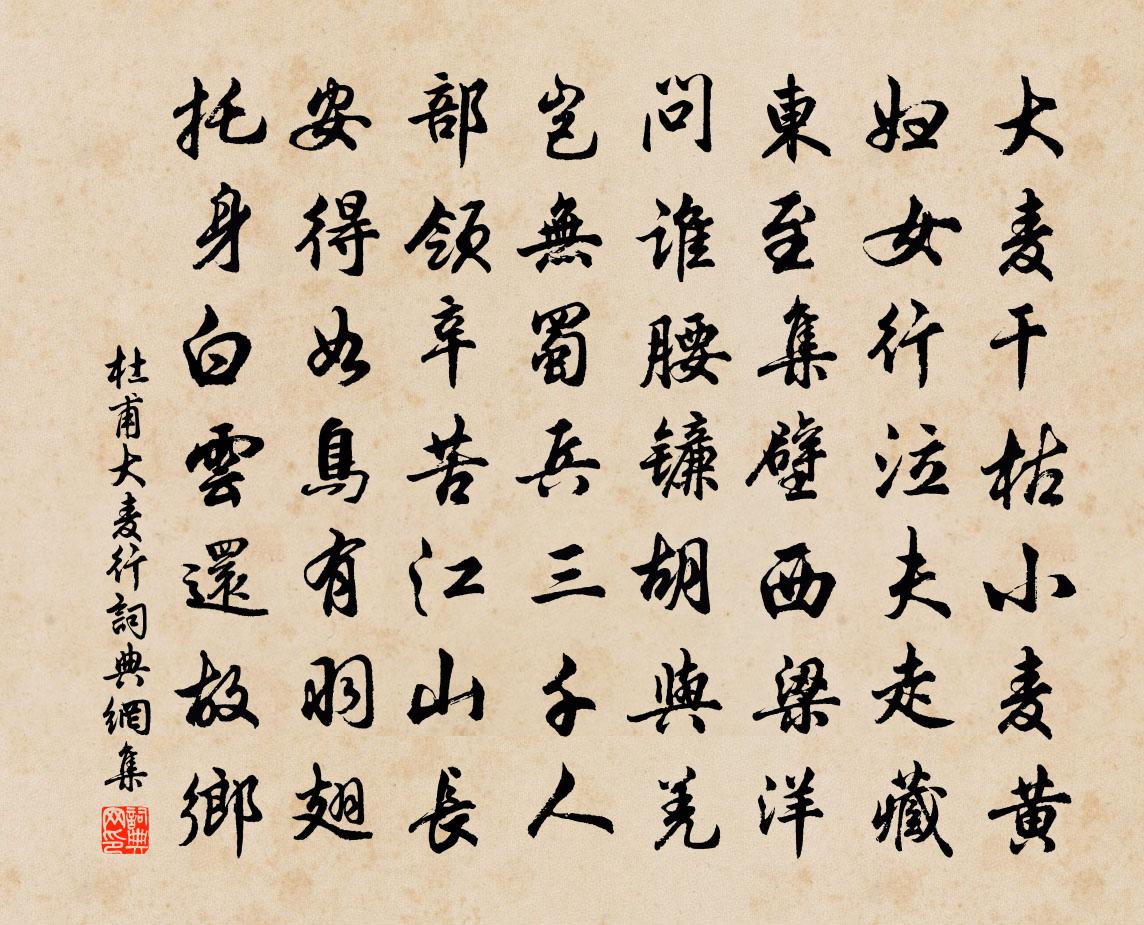 大麦干枯小麦黄
妇女行泣夫走藏
東至集壁西梁洋
問誰腰镰胡與羌
岂無蜀兵三千人
部領辛苦江山長
安得如鳥有羽翅
托身白雲還故鄉
杜甫大麦行詞典網集
詞典網印